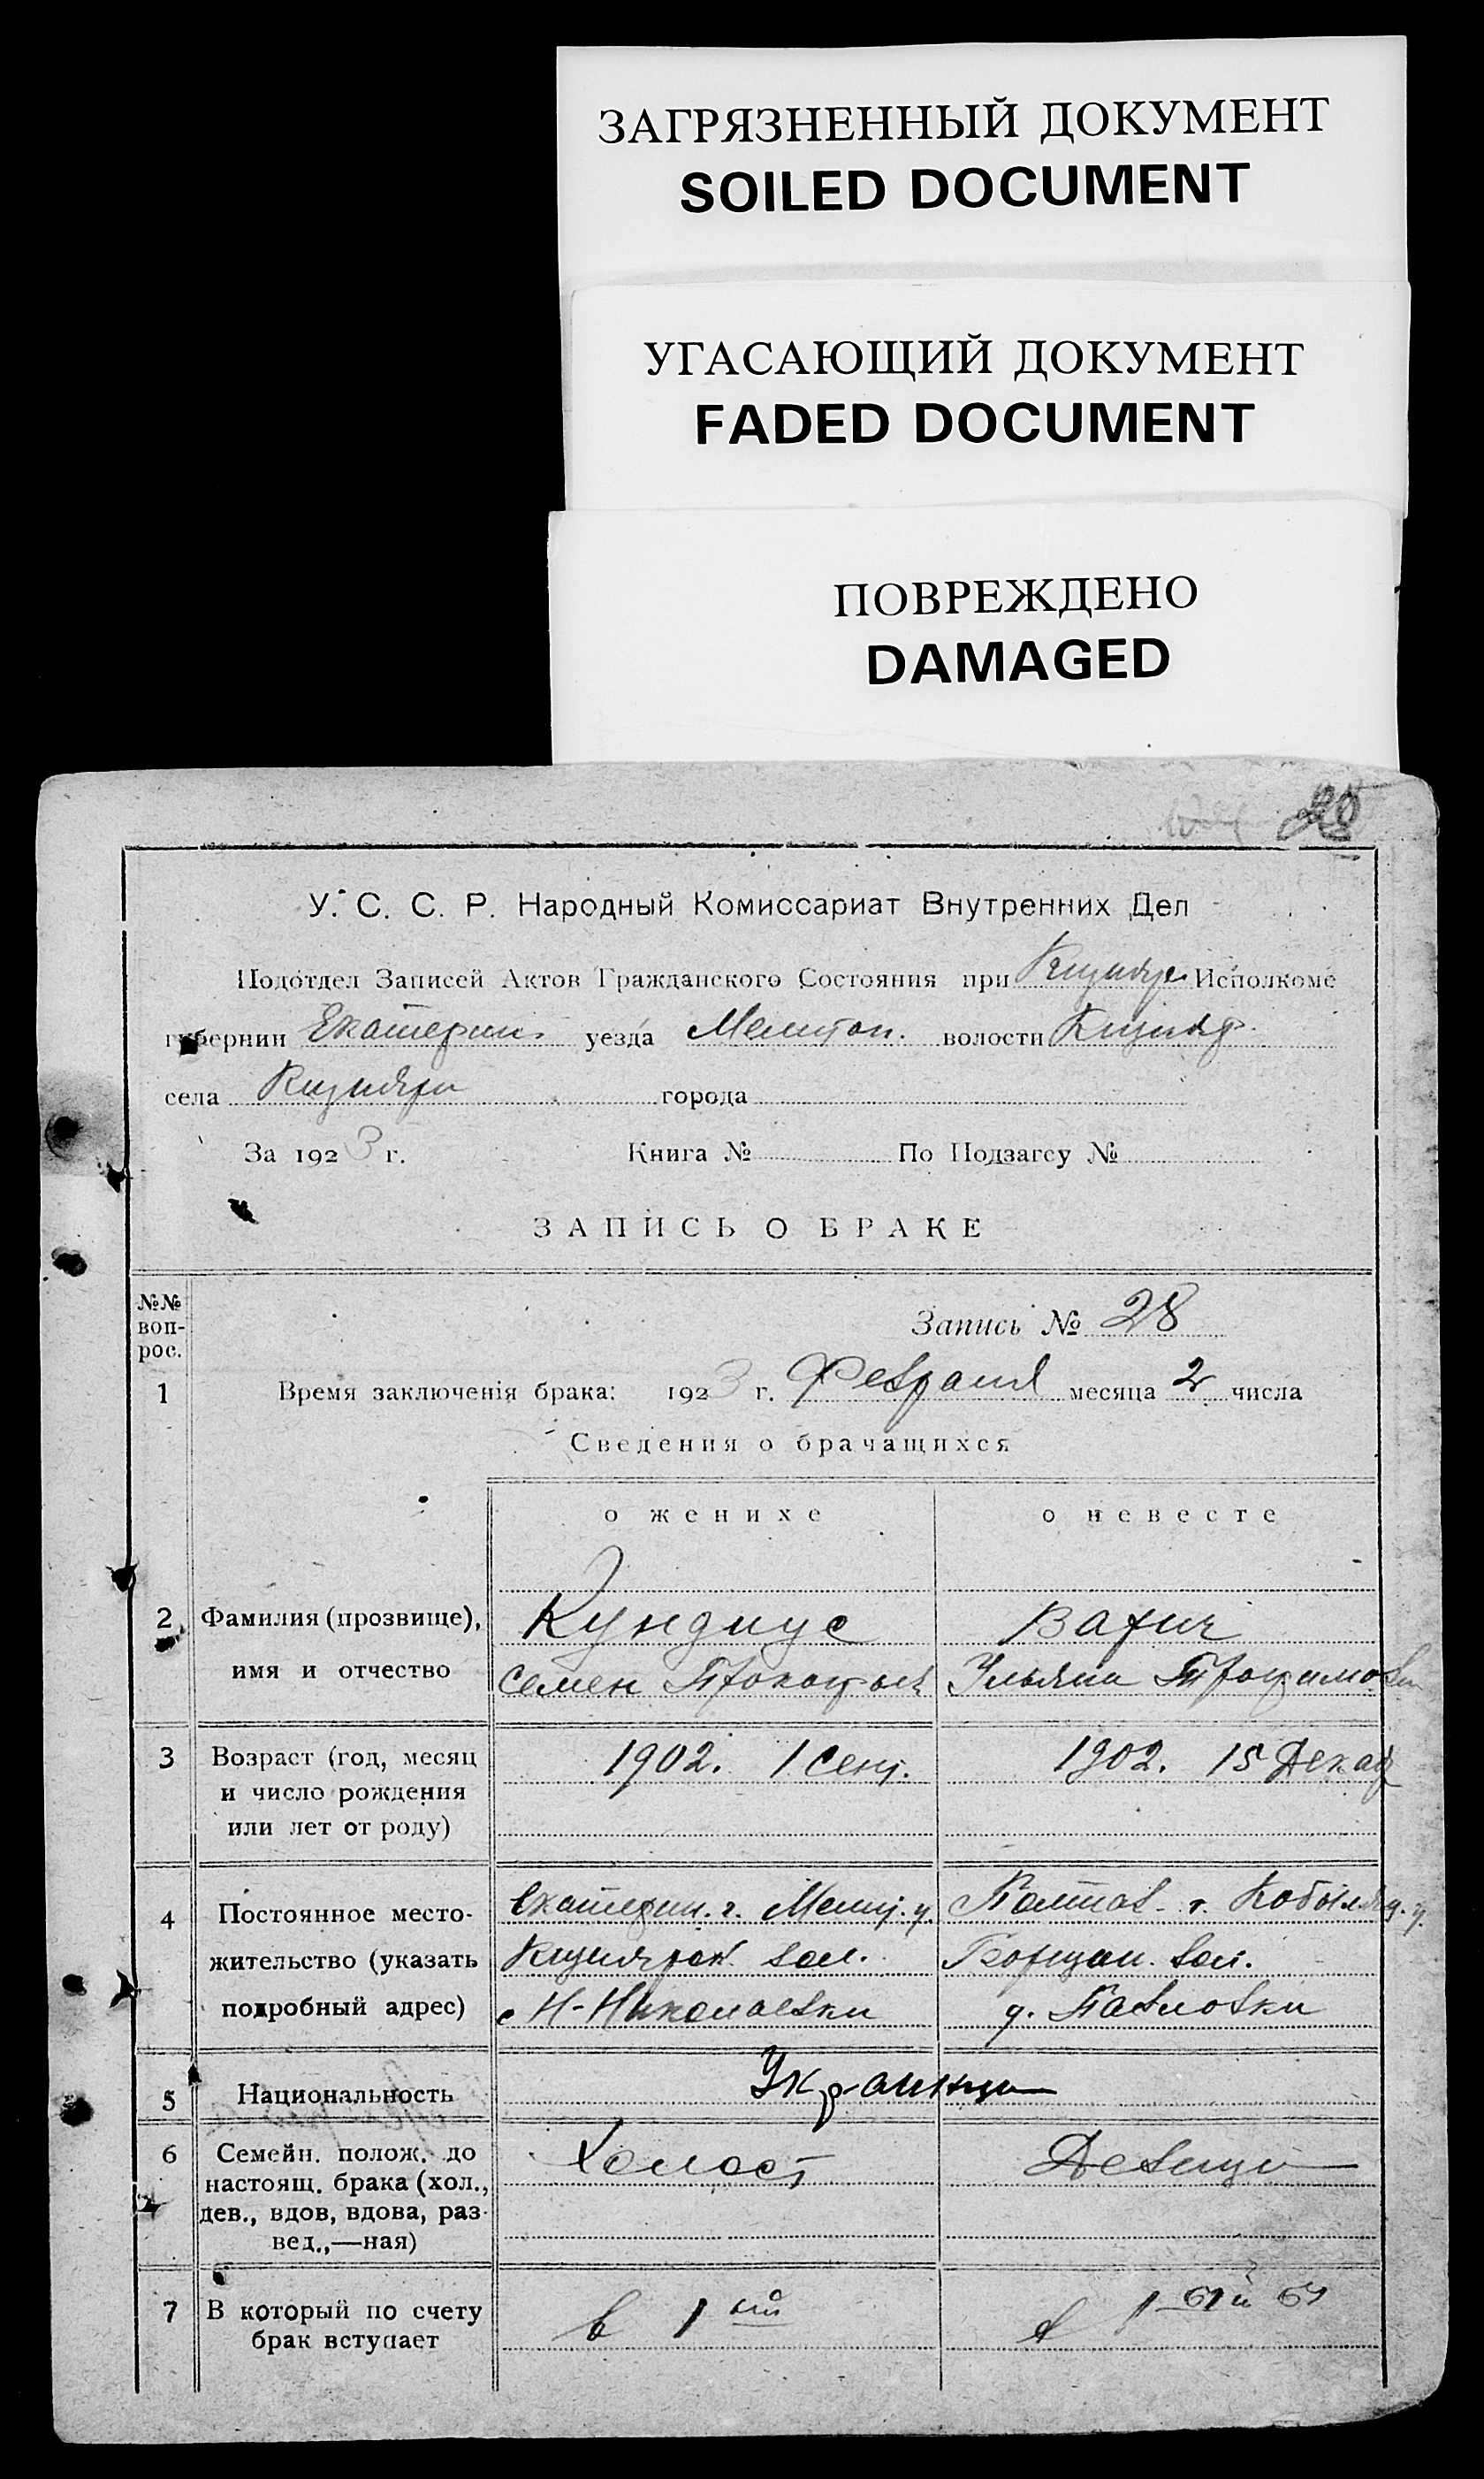 ЗАГРЯЗНЕННЫЙ ДОКУМЕНТ
SOILED DOCUMENT
УГАСАЮЩИЙ ДОКУМЕНТ
FADED DOCUMENT
ПОВРЕЖДЕНО
DAMAGED
У. С. С. Р. Народный Комиссариат Внутренних Дел
Подотдел Записей Актов Гражданского Состояния при Кизияр. Исполкоме
губернии Екатерин. уезда Мелитоп. волости Кизияр.
села Кизияри города
За 1923 г. Книга № По Подзагсу №
ЗАПИСЬ О БРАКЕ
№№ воп-рос.
Запись № 28
1 Время заключенія брака: 1923 г. Февраля месяца 2 числа
Сведения о брачащихся
о женихе о невесте
2 Фамилия (прозвище), Кундиус
имя и отчество Семен Ульяна Трофимовн
3 Возраст (год, месяц 1902. 1 Сент. 1902. 15 Декаб
и число рождения
или лет от роду)
4 Постоянное место- Екатерин. г. Мелит. у. Полтав. г. Кобыляд. у.
жительство (указать Кизиярск. вол. вол.
подробный адрес) с Н-Николаевки д. Павловки
5 Национальность Украинцы
6 Семейн. полож. до Холост Девица
настоящ. брака (хол.,
дев., вдов, вдова, раз-
вед.,—ная)
7 В который по счету в 1 ый в 1
брак вступает